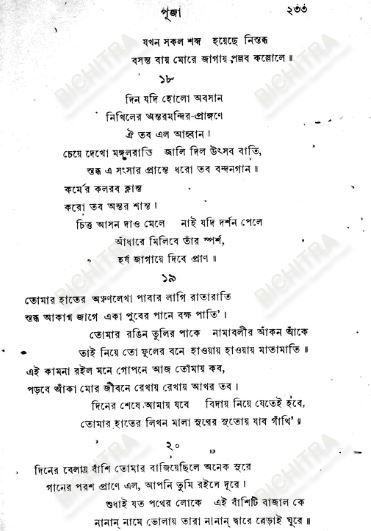 পূজা ২৩৩
যখন সকল শব্দ হয়েছে নিস্তব্ধ
বসন্ত বায় মোরে জাগায় পল্লব কল্লোলে॥
১৮
দিন যদি হোলো অবসান
নিখিলের অন্তরমন্দির-প্রাঙ্গণে
ঐ তব এল আহ্বান।
চেয়ে দেখো মঙ্গলরাতি জালি দিল উৎসব বাতি,
স্তব্ধ এ সংসার প্রান্তে ধরো তব বন্দনগান॥
কর্মের কলরব ক্লান্ত
করো তব অন্তর শান্ত।
চিত্ত আসন দাও মেলে নাই যদি দর্শন পেলে
আঁধারে মিলিবে তাঁর স্পর্শ,
হর্ষ জাগায়ে দিবে প্রাণ॥
১৯
তোমার হাতের অরুণলেখা পাবার লাগি রাতারাতি
স্তব্ধ আকাশ জাগে একা পুবের পানে বক্ষ পাতি'।
তোমার রঙিন তুলির পাকে নামাবলীর আঁকন আঁকে
তাই নিয়ে তো ফুলের বনে হাওয়ায় হাওয়ায় মাতামাতি॥
এই কামনা রইল মনে গোপনে আজ তোমায় কব,
পড়বে আঁকা মোর জীবনে রেখায় রেখায় আখর তব।
দিনের শেষে আমায় যবে বিদায় নিয়ে যেতেই হবে,
তোমার হাতের লিখন মালা সুরের সুতোয় যাব গাঁথি'॥
২০
দিনের বেলায় বাঁশি তোমার বাজিয়েছিলে অনেক সুরে
গানের পরশ প্রাণে এল, আপনি তুমি রইলে দূরে।
শুধাই যত পথের লোকে এই বাঁশিটি বাজাল কে
নানান্ নামে ভোলায় তারা নানান্ দ্বারে বেড়াই ঘুরে॥
BICHITRA